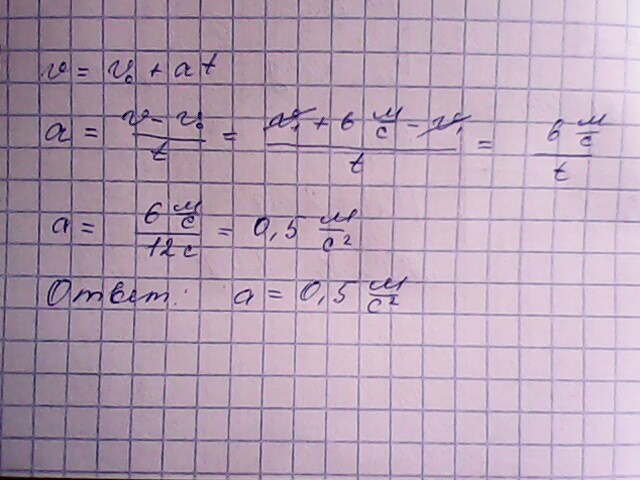 v = v₀ + at
a = (v - v₀)/t = (v₀ + 6 м/с - v₀)/t = (6 м/с)/t
a = (6 м/с)/(12 с) = 0,5 м/с²
Ответ: a = 0,5 м/с²